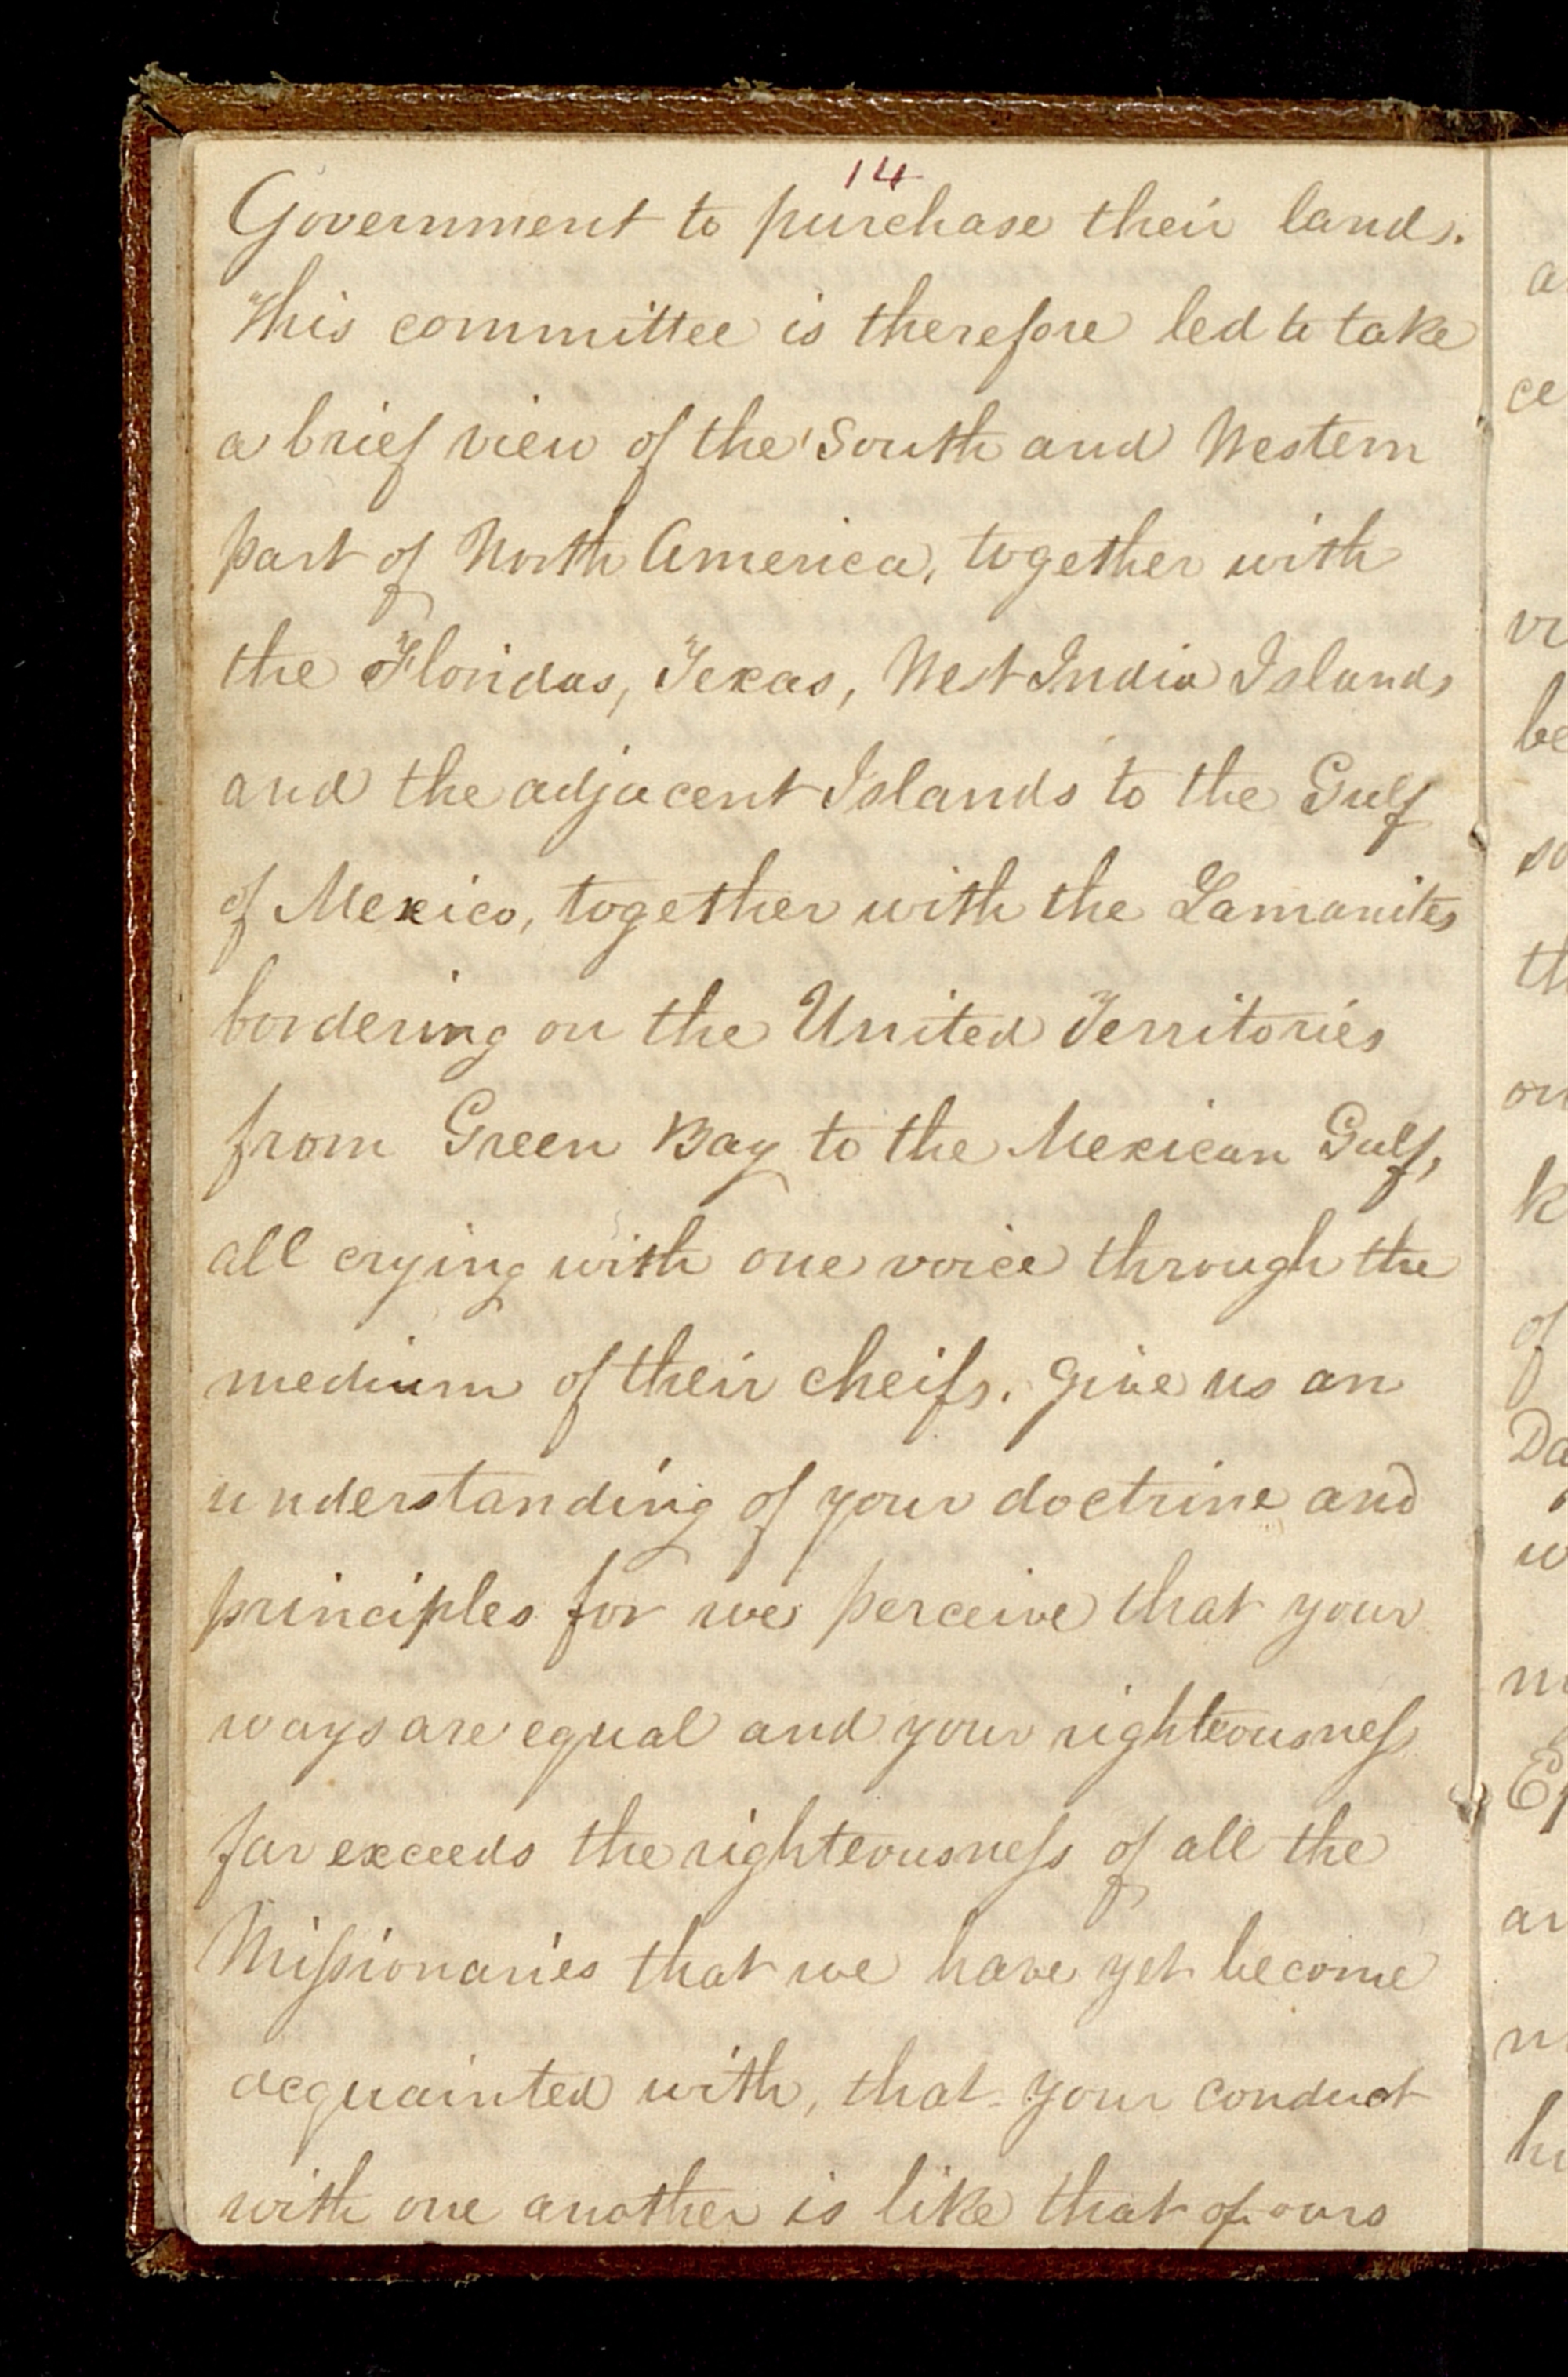 14
Government to purchase their lands.
This committee is therefore led to take
a brief view of the South and Western
part of North America, together with
the Floridas, Texas, West India Islands
and the adjacent Islands to the Gulf
of Mexico, together with the Lamanites
bordering on the United Territories
from Green Bay to the Mexican Gulf,
all crying with one voice through the
medium of their cheifs. Give us an
understanding of your doctrine and
principles for we perceive that your
ways are equal and your righteousneſs
far exceeds the righteousneſs of all the
Miſsionaries that we have yet become
acquainted with, that your conduct
with one another is like that of ours
a
ce
vi
be
so
th
on
k
of
Da
w
m
Ep
ar
n
hi